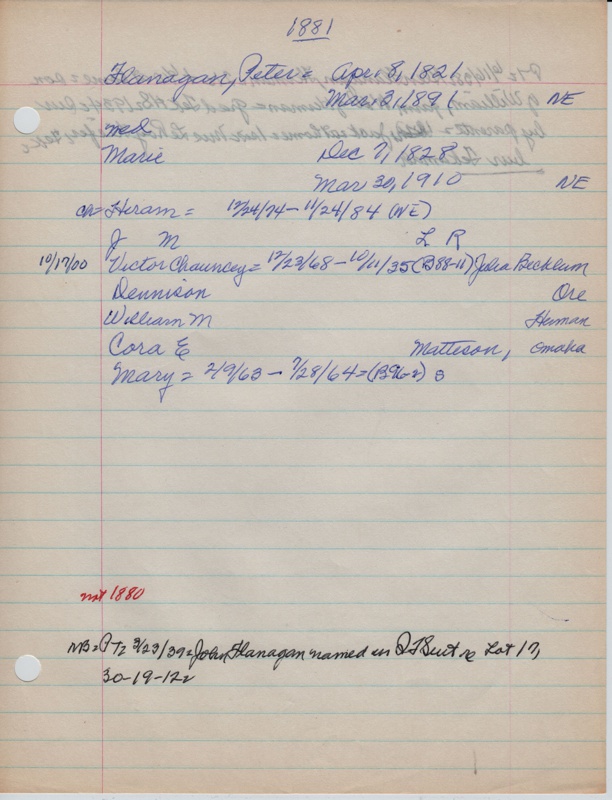 1881
Flanagan, Peter = Apr 8, 1821
Mar 2, 1891, NE
md
Marie Dec 7, 1828
Mar 30, 1910 NE
ch = Hiram = 12/24/74 - 11/24/84 (NE)
J M L R
10/17/00 Victor Chauncey = 12/23/68 - 10/11/35 (B88-11) Julia Beckham
Dennison Ore
William M Herman
Cora E Matteson, Omaha
Mary = 2/9/63 - 7/28/64 = (B96-2) S
not 1880
NB = PT = 3/23/39 = John Flanagan named in QT Suit re Lot 17,
30-19-12